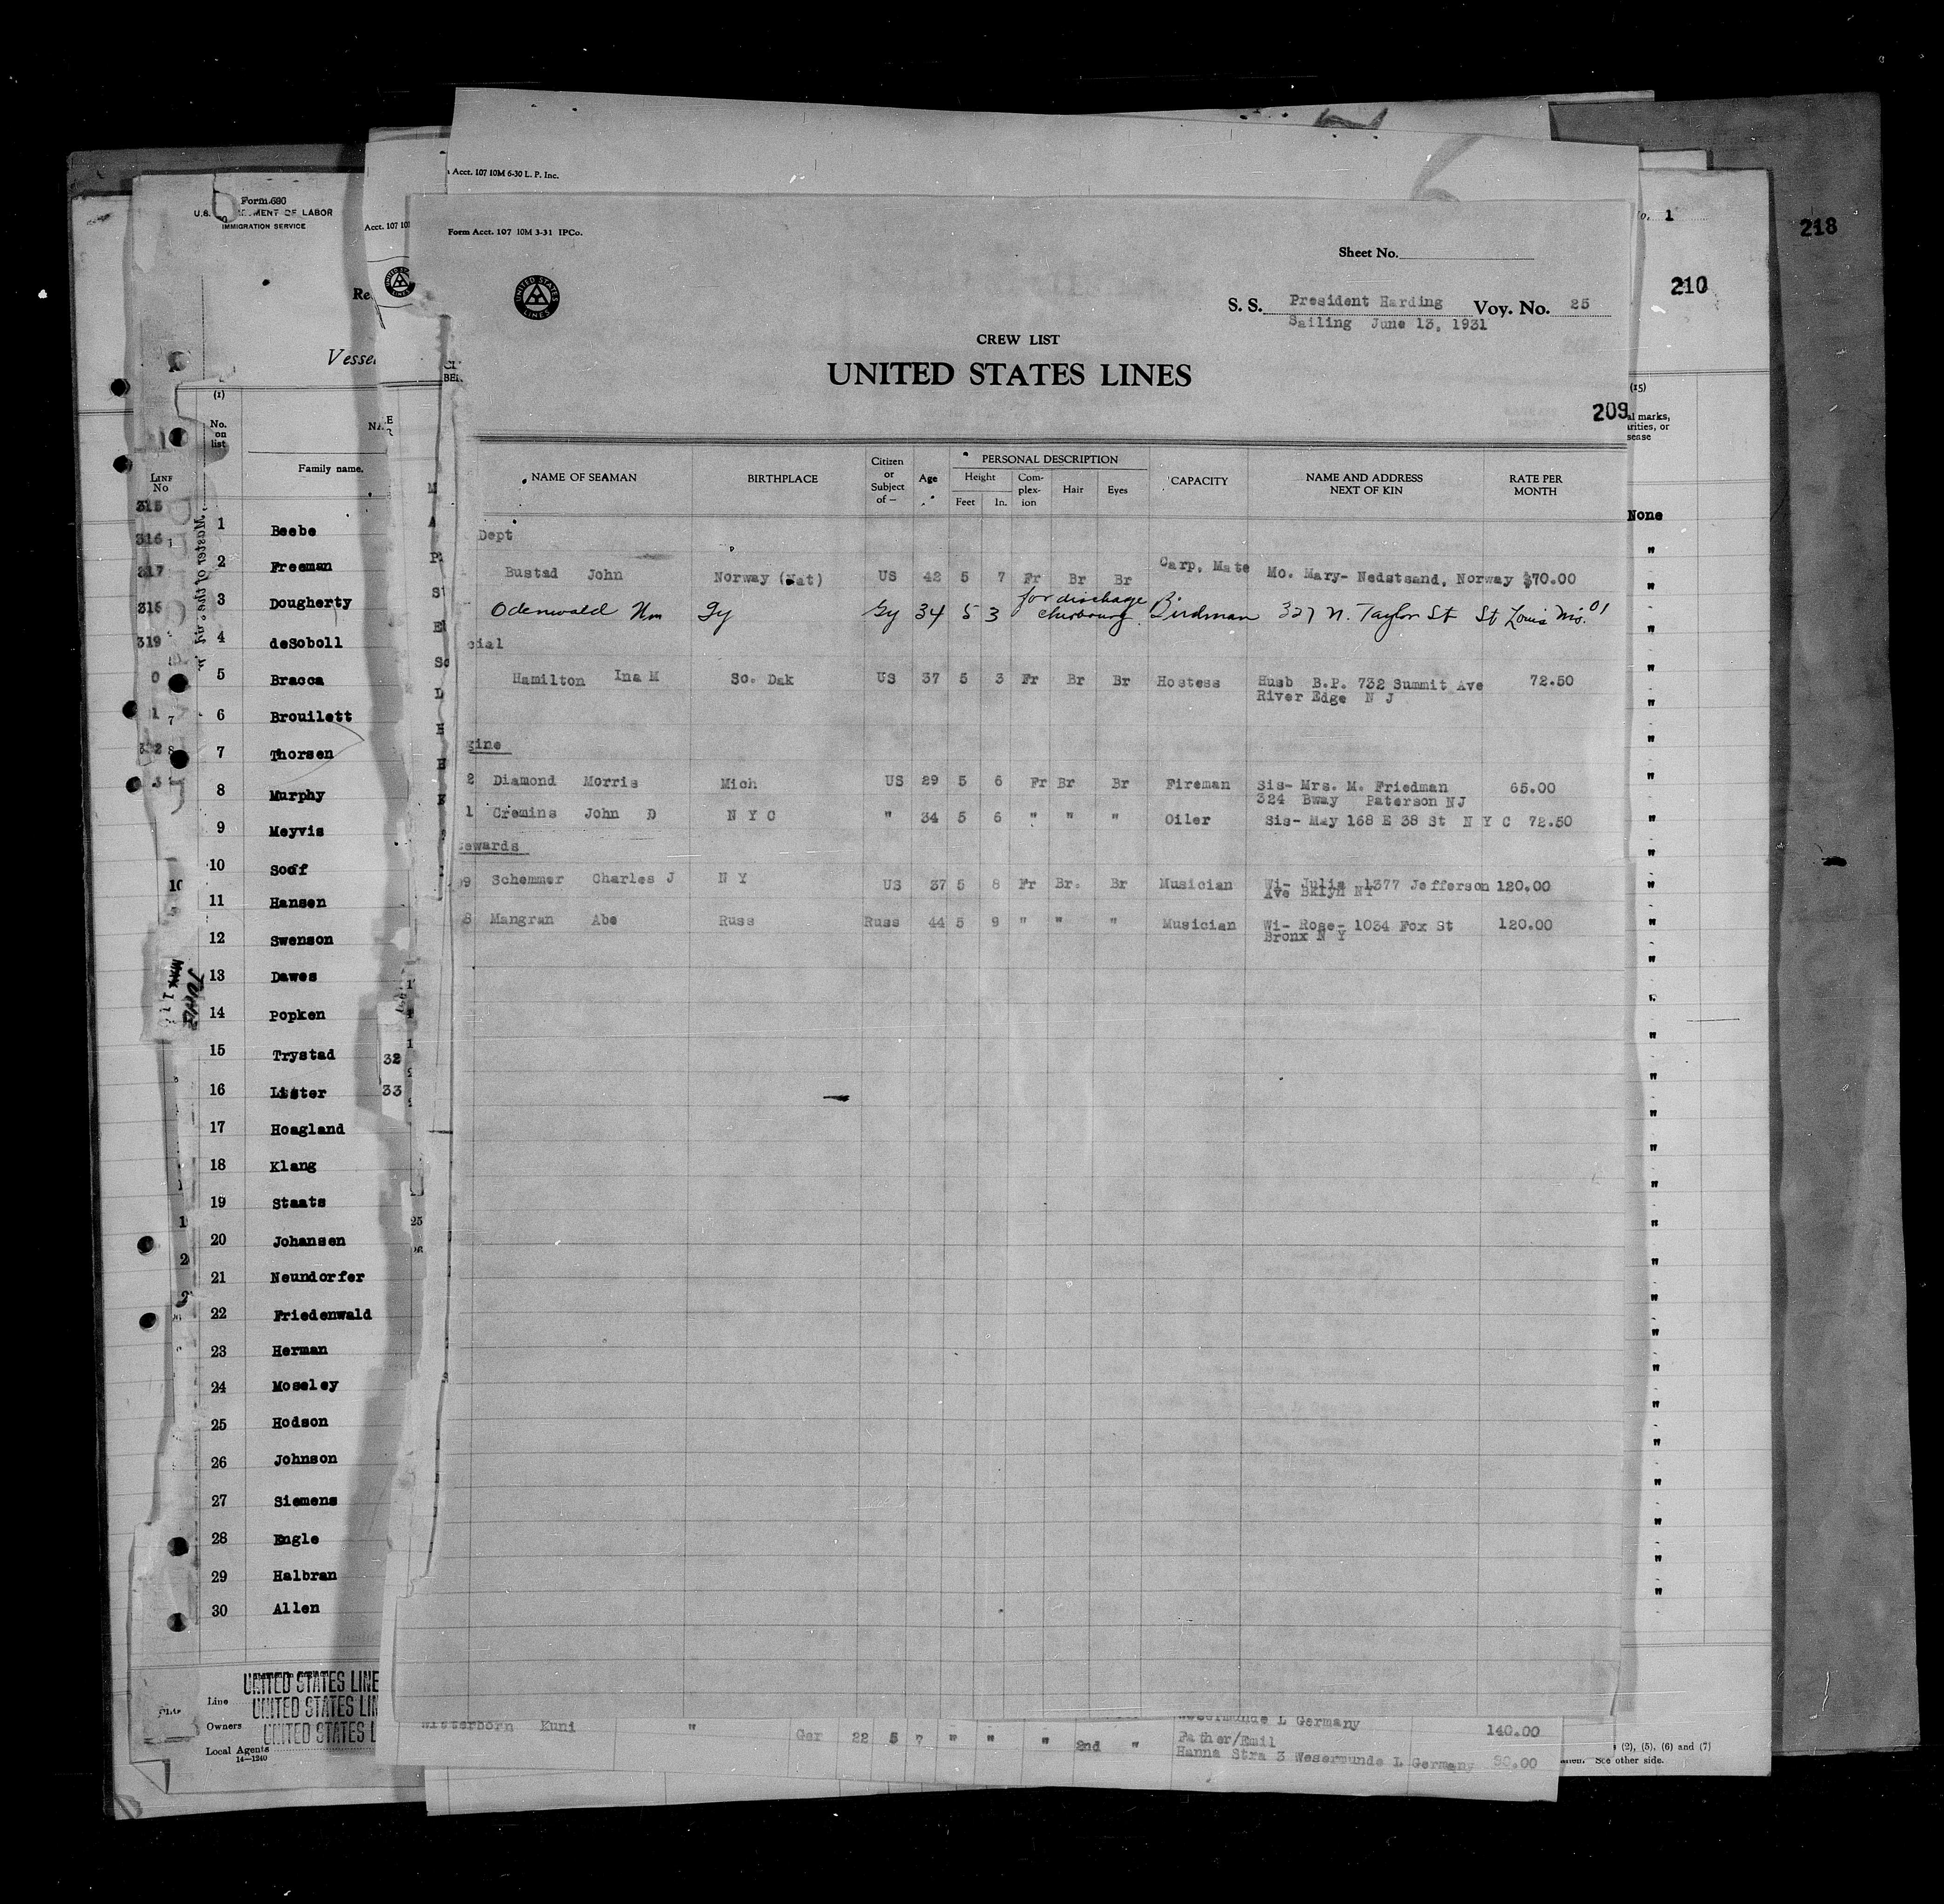 Acct. 107 10M 6-30 L. P. Inc.
Form 680
U.S. DEPARTMENT OF LABOR
IMMIGRATION SERVICE
Acct. 107 10
Form Acct. 107 10M 3-31 IPCo.
Sheet No.
UNITED STATES LINES
S. S. President Harding Voy. No. 25
Sailing June 13, 1931
CREW LIST
UNITED STATES LINES
209
1
218
210
NAME OF SEAMAN
BIRTHPLACE
Citizen or Subject of —
Age
PERSONAL DESCRIPTION
Height
Feet
In.
Com-plex-ion
Hair
Eyes
CAPACITY
NAME AND ADDRESS NEXT OF KIN
RATE PER MONTH
Dept
Bustad John Norway (Nat) US 42 5 7 Fr Br Br Carp. Mate Mo. Mary- Nedstsand, Norway $70.00
for discharge
Odenwald Wm Gy Gy 34 5 3 Cherbourg. Birdman 327 N. Taylor St St Louis Mo. 01
cial
Hamilton Ina M So. Dak US 37 5 3 Fr Br Br Hostess Husb B.P. 732 Summit Ave 72.50
River Edge N J
gine
2 Diamond Morris Mich US 29 5 6 Fr Br Br Fireman Sis- Mrs. M. Friedman 65.00
324 Bway Paterson NJ
1 Cremins John D N Y C " 34 5 6 " " " Oiler Sis- May 168 E 38 St N Y C 72.50
ewards
9 Schemmer Charles J N Y US 37 5 8 Fr Br. Br Musician Wi- Julia 1377 Jefferson 120.00
Ave Bklyn NY
8 Mangran Abe Russ Russ 44 5 9 " " " Musician Wi- Rose- 1034 Fox St 120.00
Bronx N Y
Wesermunde L Germany 140.00
Witterborn Kuni " Ger 22 5 7 " " " 2nd " Father/Emil
Hanna Stra 3 Wesermunde L Germany 90.00
Vesse
(1)
No. on list
Family name.
LINE No
315
316
317
318
319
1 Beebe
2 Freeman
3 Dougherty
4 deSoboll
5 Bracca
6 Brouilett
7 Thorsen
8 Murphy
9 Meyvis
10 Soof
11 Hansen
12 Swenson
13 Dawes
14 Popken
15 Trystad
16 Lister
17 Hoagland
18 Klang
19 Staats
20 Johansen
21 Neundorfer
22 Friedenwald
23 Herman
24 Moseley
25 Hodson
26 Johnson
27 Siemens
28 Engle
29 Halbran
30 Allen
32
33
Line UNITED STATES LINE
Owners UNITED STATES LIN
Local Agents UNITED STATES L
14—1240
(15)
al marks,
arities, or
sease
None
(2), (5), (6) and (7)
See other side.